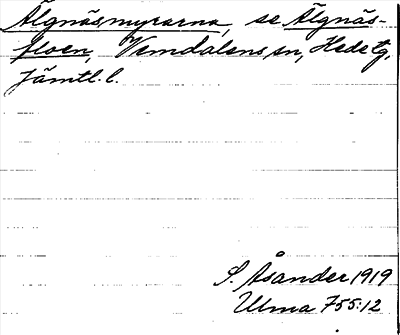 Älgnäsmyrarna, se Älgnäs-
floen, Vemdalens sn, Hede tg,
Jämtl. l.
S. Åsander 1919
Ulma 755:12